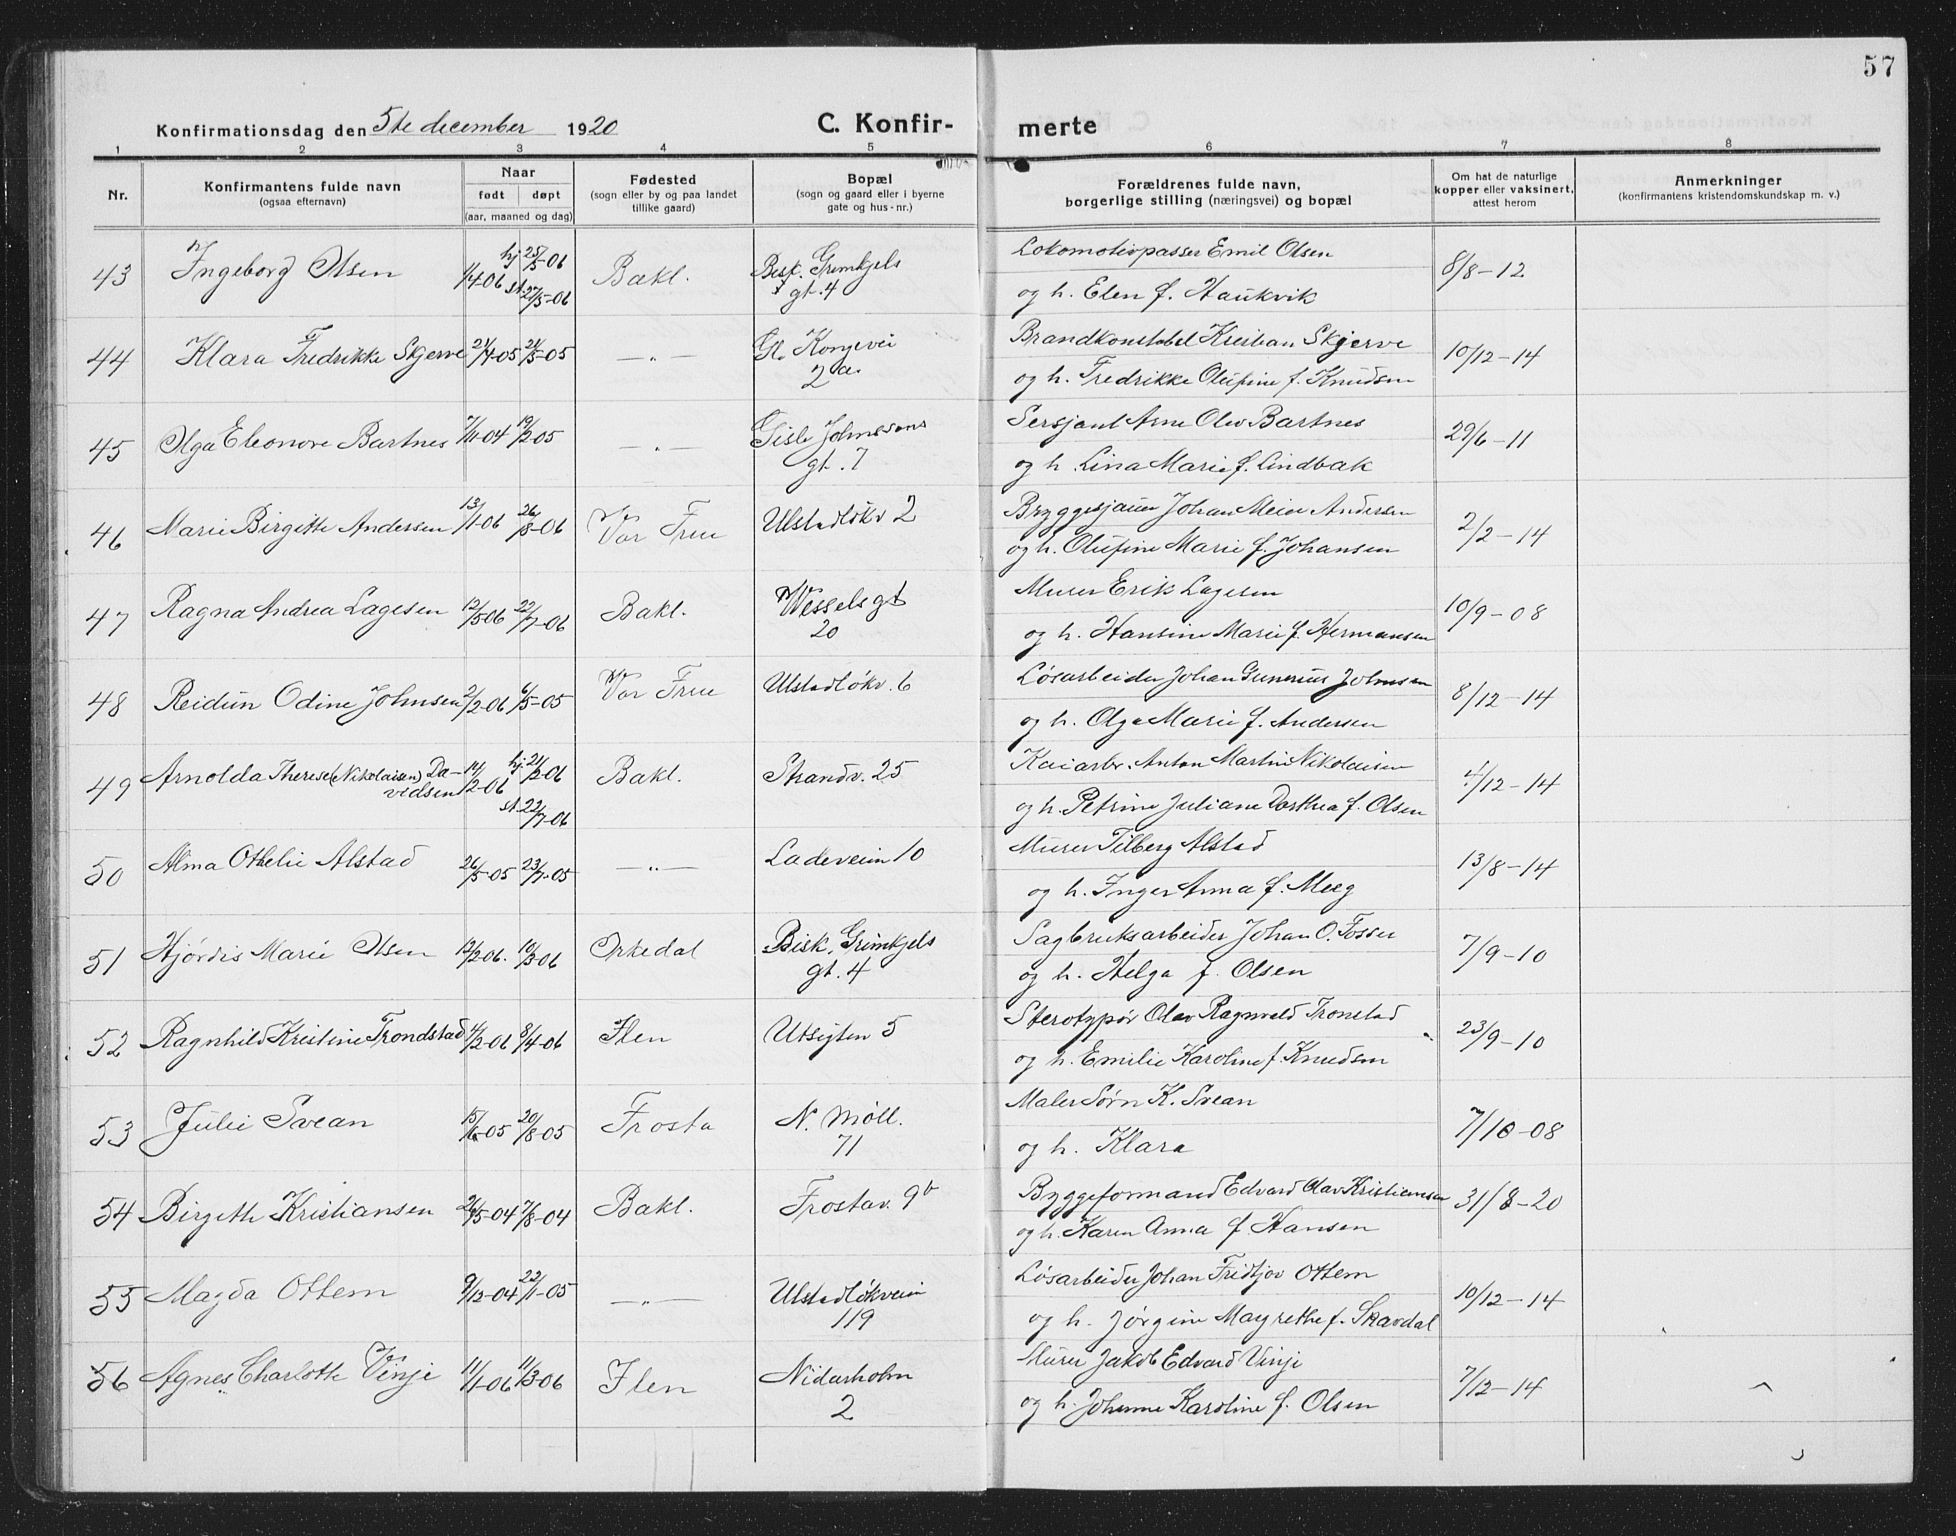 57
Konfirmationsdag den 5te december 1920 C. Konfir- merte
1 2 3 4 5 6 7 8
Nr.
Konfirmantens fulde navn
(ogsaa efternavn)
Naar
født døpt
(aar, maaned og dag)
Fødested
(sogn eller by og paa landet
tillike gaard)
Bopæl
(sogn og gaard eller i byerne
gate og hus-nr.)
Forældrenes fulde navn,
borgerlige stilling (næringsvei) og bopæl
Om hat de naturlige
kopper eller vaksinert,
attest herom
Anmerkninger
(konfirmantens kristendomskundskap m. v.)
43 Ingeborg Olsen 1/4-06 hj 25/5-06 st. 27/5-06 Bakl. Bisk. Grimkjels gt. 4 Lokomotivpasser Emil Olsen 8/8-12
og h. Elen f. Haukvik
44 Klara Fredrikke Skjerve 21/4-05 21/5-05 —"— Gl. Kongevei 2a. Brandkonstabel Kristian Skjerve 10/12-14
og h. Fredrikke Olufine f. Knudsen
45 Olga Eleonore Bartnes 7/11-04 19/2-05 —"— Gisle Johnssons gt. 7 Sersjant Arne Olav Bartnes 29/6-11
og h. Lina Marie f. Lindbak
46 Marie Birgitte Andersen 13/1-06 26/8-06 Vor Frue Ulstadløkv 2 Bryggesjauer Johan Meier Andersen 2/2-14
og h. Olufine Marie f. Johansen
47 Ragna Andrea Lagesen 12/5-06 22/7-06 Bakl. Wessels gt 20 Murer Erik Lagesen 10/9-08
og h. Hansine Marie f. Hermansen
48 Reidun Odine Johnsen 2/2-06 6/5-05 Vor Frue Ulstadløkv. 6 Løsarbeider Johan Gunerius Johnsen 8/12-14
og h. Olga Marie f. Andersen
49 Arnolda Therese (Nikolaisen) Da-
vidsen 14/2-06 hj. 21/2-06 st. 22/7-06 Bakl. Strandv. 25 Kaiarb. Anton Martin Nikolaisen 4/12-14
og h. Petrine Juliane Dorthea f. Olsen
50 Alma Othelie Alstad 26/5-05 23/7-05 —"— Ladeveien 10 Murer Tilberg Alstad 13/8-14
og h. Inger Anna f. Meeg
51 Hjørdis Marie Olsen 12/2-06. 10/3-06 Orkedal Bisk. Grimkjels gt. 4 Sagbruksarbeider Johan O. Fosser 7/9-10
og h. Helga f. Olsen
52 Ragnhild Kristine Trondstad 4/2-06 8/4-06 Ilen Utsigten 5 Sterotypør Olav Ragnvald Tronstad 23/9-10
og h. Emilie Karoline f. Knudsen
53 Julie Svean 15/6-05 20/8-05 Frosta N. Møll. 71 Maler Sørn K. Svean 7/10-08
og h. Klara
54 Birgith Kristiansen 26/5-04 7/8-04 Bakl. Frostav. 9b Byggeformand Edvard Olav Kristiansen 31/8-20
og h. Karen Anna f. Hansen
55 Magda Ottem 9/12-04 22/1-05 —"— Ulstadløkveien 119 Løsarbeider Johan Fridtjov Ottem 10/12-14
og h. Jørgine Margrethe f. Skavdal
56 Agnes Charlotte Vinje 11/1-06 11/3-06 Ilen Nidarholm 2 Murer Jakob Edvard Vinje 7/12-14
og h. Johanne Karoline f. Olsen